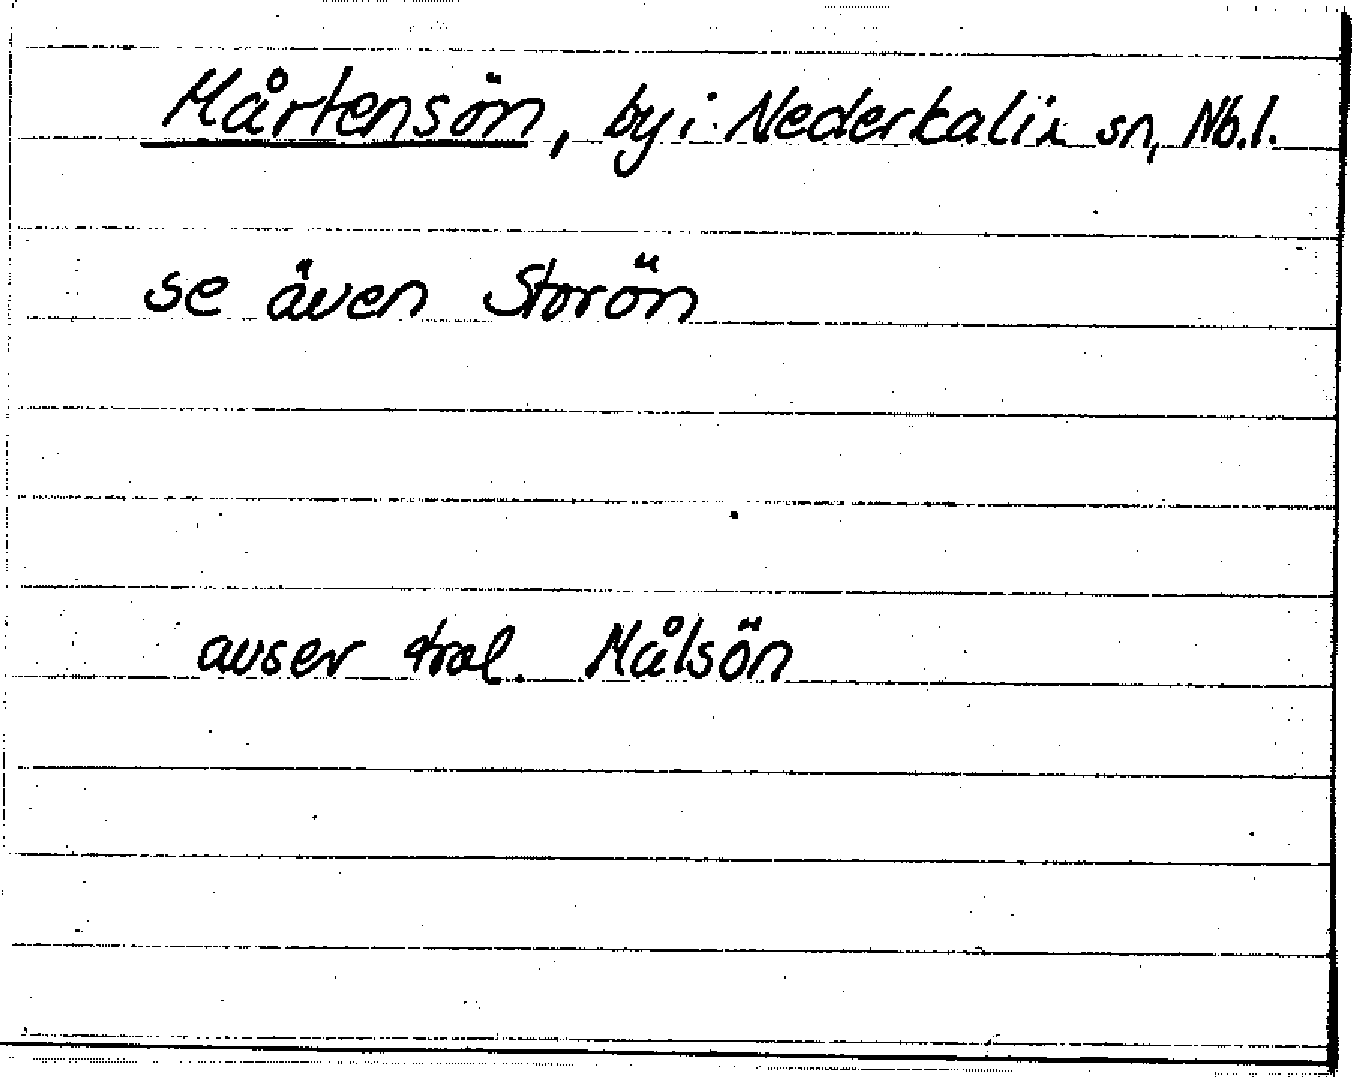 Mårtensön, by i Nederkalix sn, Nb.l.
se även Storön
avser tral. Målsön